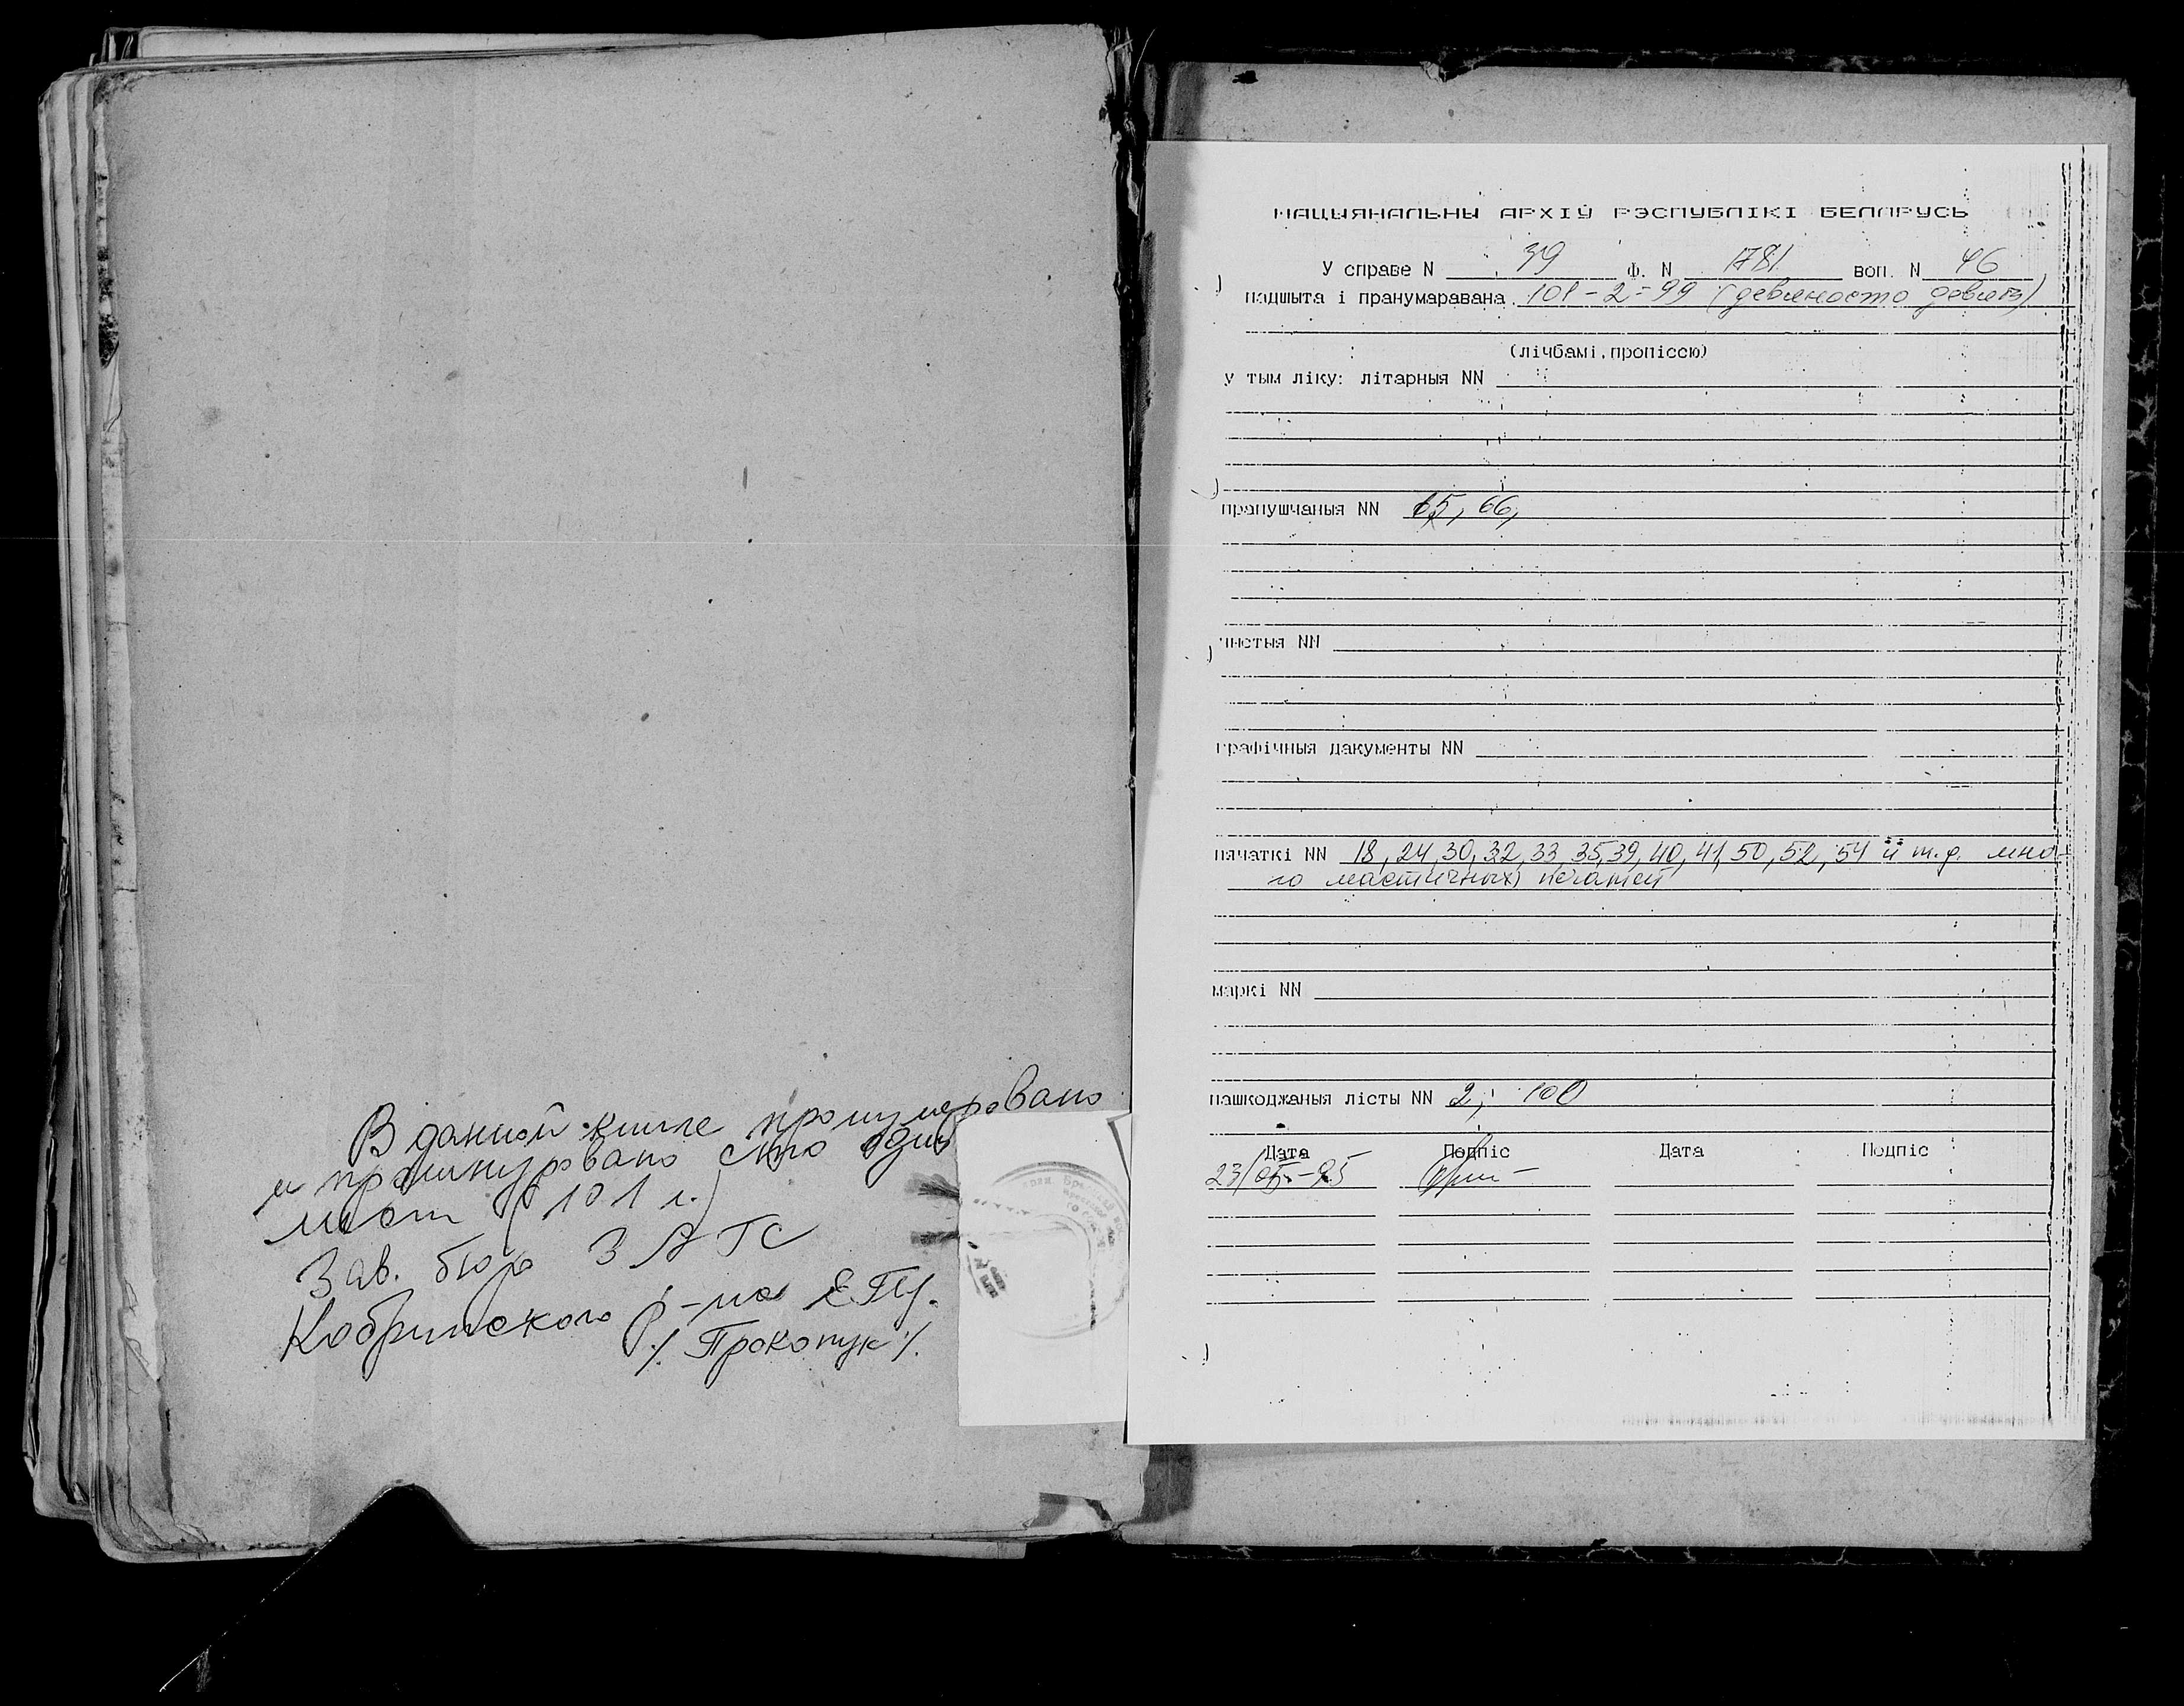 В данной книге пронумеровано
и прошнуровано сто один
лист (101 л.)
Зав. бюро ЗАГС
Кобринского р-на
/Прокопук/.
НАЦЫЯНАЛЬНЫ АРХІЎ РЭСПУБЛІКІ БЕЛАРУСЬ
У справе N 39 Ф. N 1781 воп. N 46
падшыта і пранумаравана 101-2-99 (девяносто девять)
(лічбамі, пропіссю)
у тым ліку: літарныя NN
прапушчаныя NN 65, 66,
чистыя NN
графічныя дакументы NN
пячаткі NN 18, 24, 30, 32, 33, 35, 39, 40, 41, 50, 52, 54 и т.д. мно-
го мастичных печатей
маркі NN
пашкоджаныя лісты NN 2, 100
Дата Подпіс Дата Подпіс